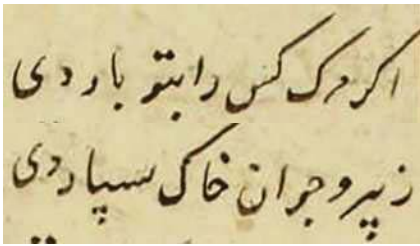 اکر مرک کس را بتو باردی
ز پیر و جوان خاک سپاردی